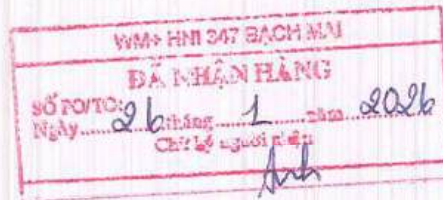 WM+ HNI 347 BẠCH MAI
ĐÃ NHẬN HÀNG
SỐ PO/TO:
Ngày 26 tháng 1 năm 2026
Chữ ký người nhận
Anh